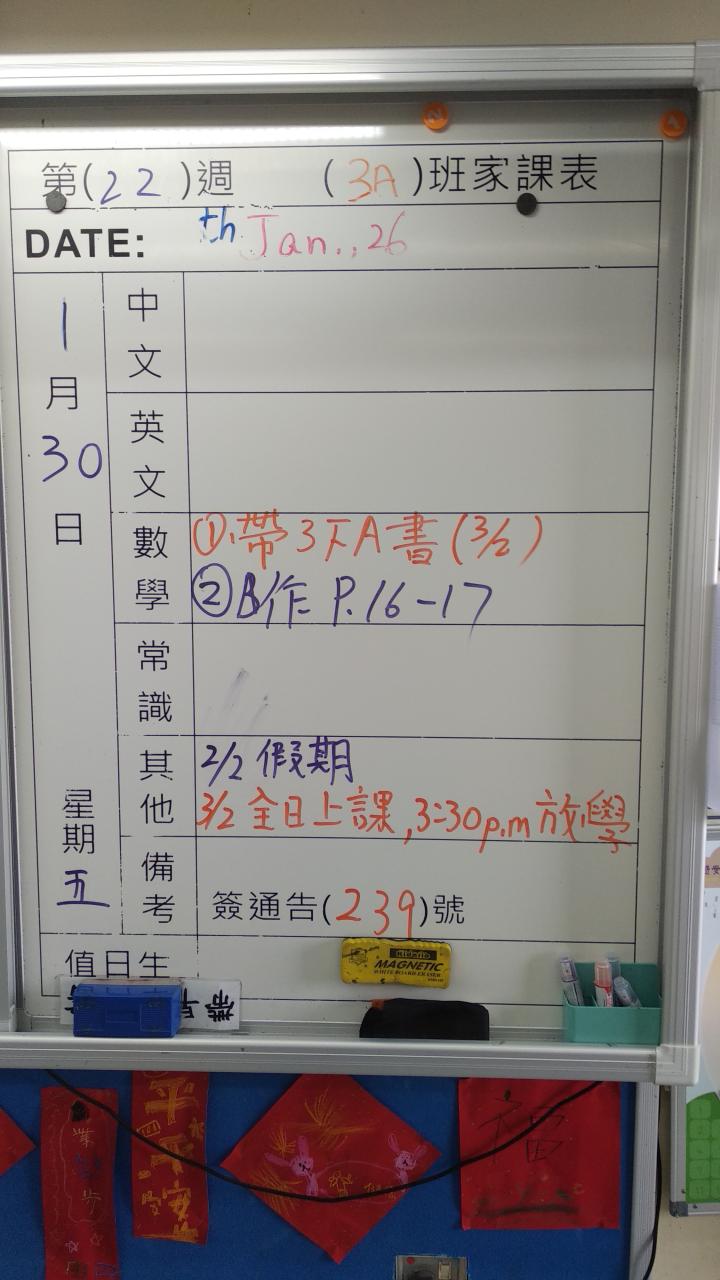 第(22)週 (3A)班家課表
DATE: th Jan., 26
1月30日 星期五
中文
英文
數學 ①.帶3下A書(3/2)
②B作 P.16-17
常識
其他 2/2 假期
3/2 全日上課,3:30p.m放學
備考 簽通告(239)號
值日生
MAGNETIC
WHITE BOARD ERASER
福